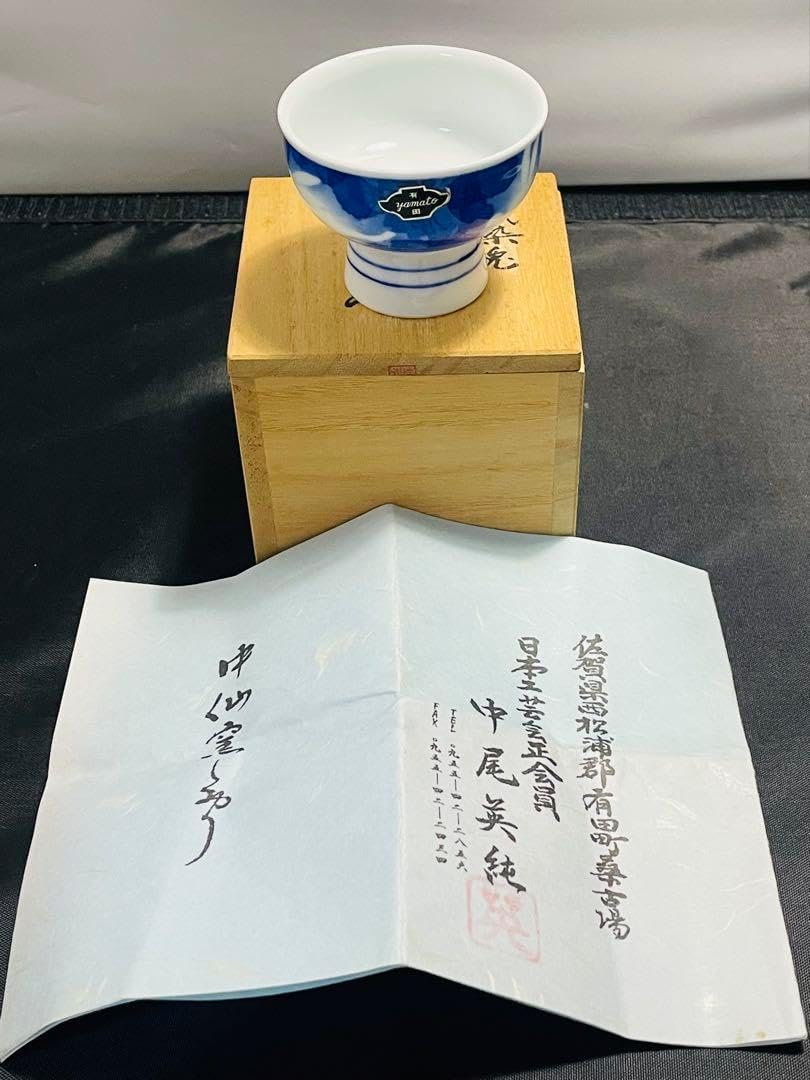 有
yamato
田
染兎
佐賀県西松浦郡有田町桑古場
日本工芸会正会員
中尾英純
TEL 〇九五五―四二―二八五六
FAX 〇九五五―四二―二四三四
中仙窯しおり